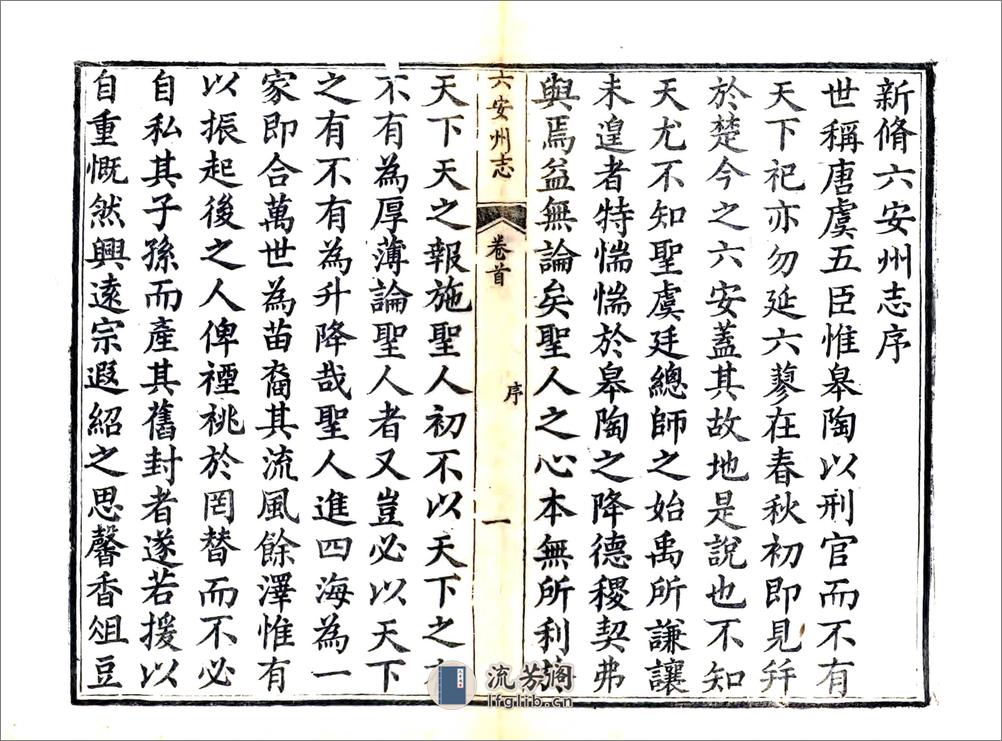 新脩六安州志序
世稱唐虞五臣惟皋陶以刑官而不有
天下祀亦勿延六蓼在春秋初即見幷
於楚今之六安蓋其故地是說也不知
天尤不知聖虞廷總師之始禹所謙讓
未遑者特惴惴於皋陶之降德稷契弗
與焉益無論矣聖人之心本無所利於
六安州志
卷首
序
一
天下天之報施聖人初不以天下之
不有為厚薄論聖人者又豈必以天下
之有不有為升降哉聖人進四海為一
家即合萬世為苗裔其流風餘澤惟有
以振起後之人俾禋祧於罔替而不必
自私其子孫而產其舊封者遂若援以
自重慨然興遠宗遐紹之思馨香俎豆
流芳閣
lfglib.cn